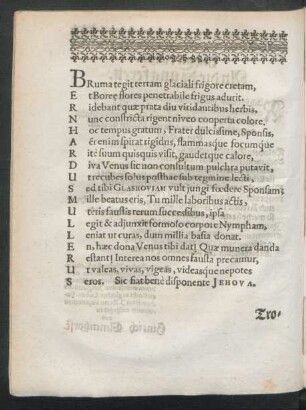 BRuma tegit terram glaciali frigore cretam,
Et Boreę flores penetrabile frigus adurit.
Ridebant quæ prata diu viridantibus herbis,
Nunc constricta rigent niveo cooperta colore.
Hoc tempus gratum, Frater dulcissime, Sponsis,
Aër enim spirat rigidus, flammasque focumque
Rité suum quisquis visit, gaudetque calore,
Diva Venus sic non consultum pulchra putavit,
Ut recubes solus posthac sub tegmine lecti,
Sed tibi GLASHOVIAM vult jungi fœdere Sponsam;
Mille beatus eris, Tu mille laboribus actis,
Uteris faustis rerum successibus, ipsa
Legit & adjunxit formoso corpore Nympham,
Leniat ut curas, dum millia basia donat.
En, hæc dona Venus tibi dat! Quæ munera danda
Restant? Interea nos omnes fausta precamur,
Ut valeas, vivas, vigeas, videasque nepotes
Seros. Sic fiat benè disponente JEHOVA.
Tro-